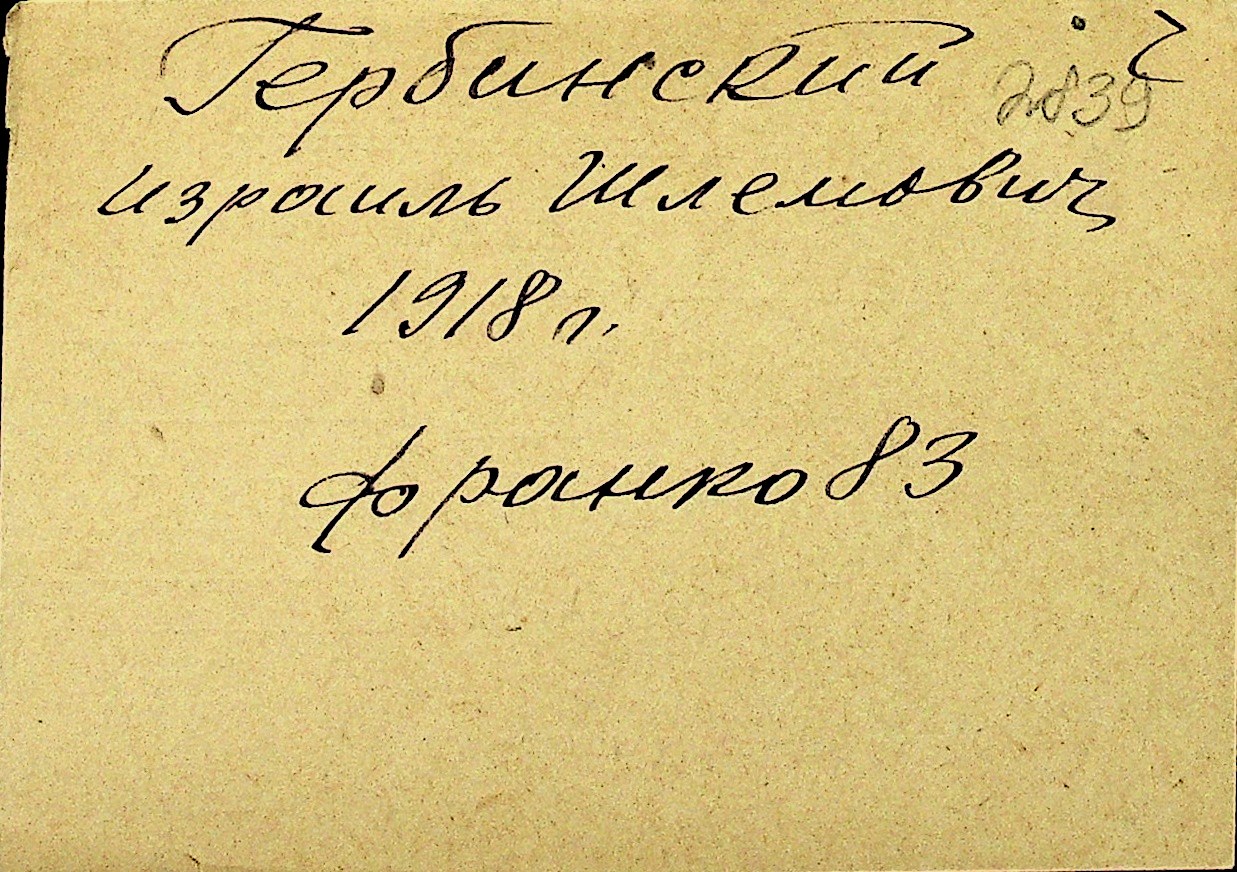 Гербинский
2839
израиль Шлемович
1918 г.
франко 83